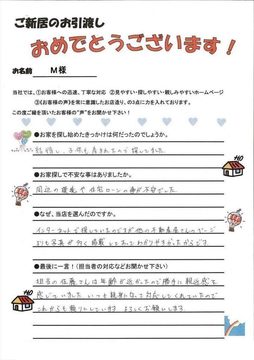 ご新居のお引渡し
おめでとうございます！
お名前 M 様
当社では、①お客様への迅速、丁寧な対応 ②見やすい・探しやすい・親しみやすいホームページ
③《お客様の声》を常に意識したお店造り、の3点に力を入れております。
この度ご縁を頂いたお客様の“声”をお聞かせ下さい！
●お家を探し始めたきっかけは何だったのでしょうか。
結婚し、子供も産まれたので探してました。
●お家探しで不安な事はありましたか。
周辺の環境や住宅ローンの事が不安でした
●なぜ、当店を選んだのですか。
インターネットで探していたのですが他の不動産屋さんのページ
よりも写真が多く掲載してあってわかりやすかったからです
●最後に一言！（担当者の対応などお聞かせ下さい）
担当の佐藤さんは年齢が近かったので勝手に親近感を
感じていました。いつも親身になって対応してくれていたので
これからも頼りにしています。よろしくお願いします